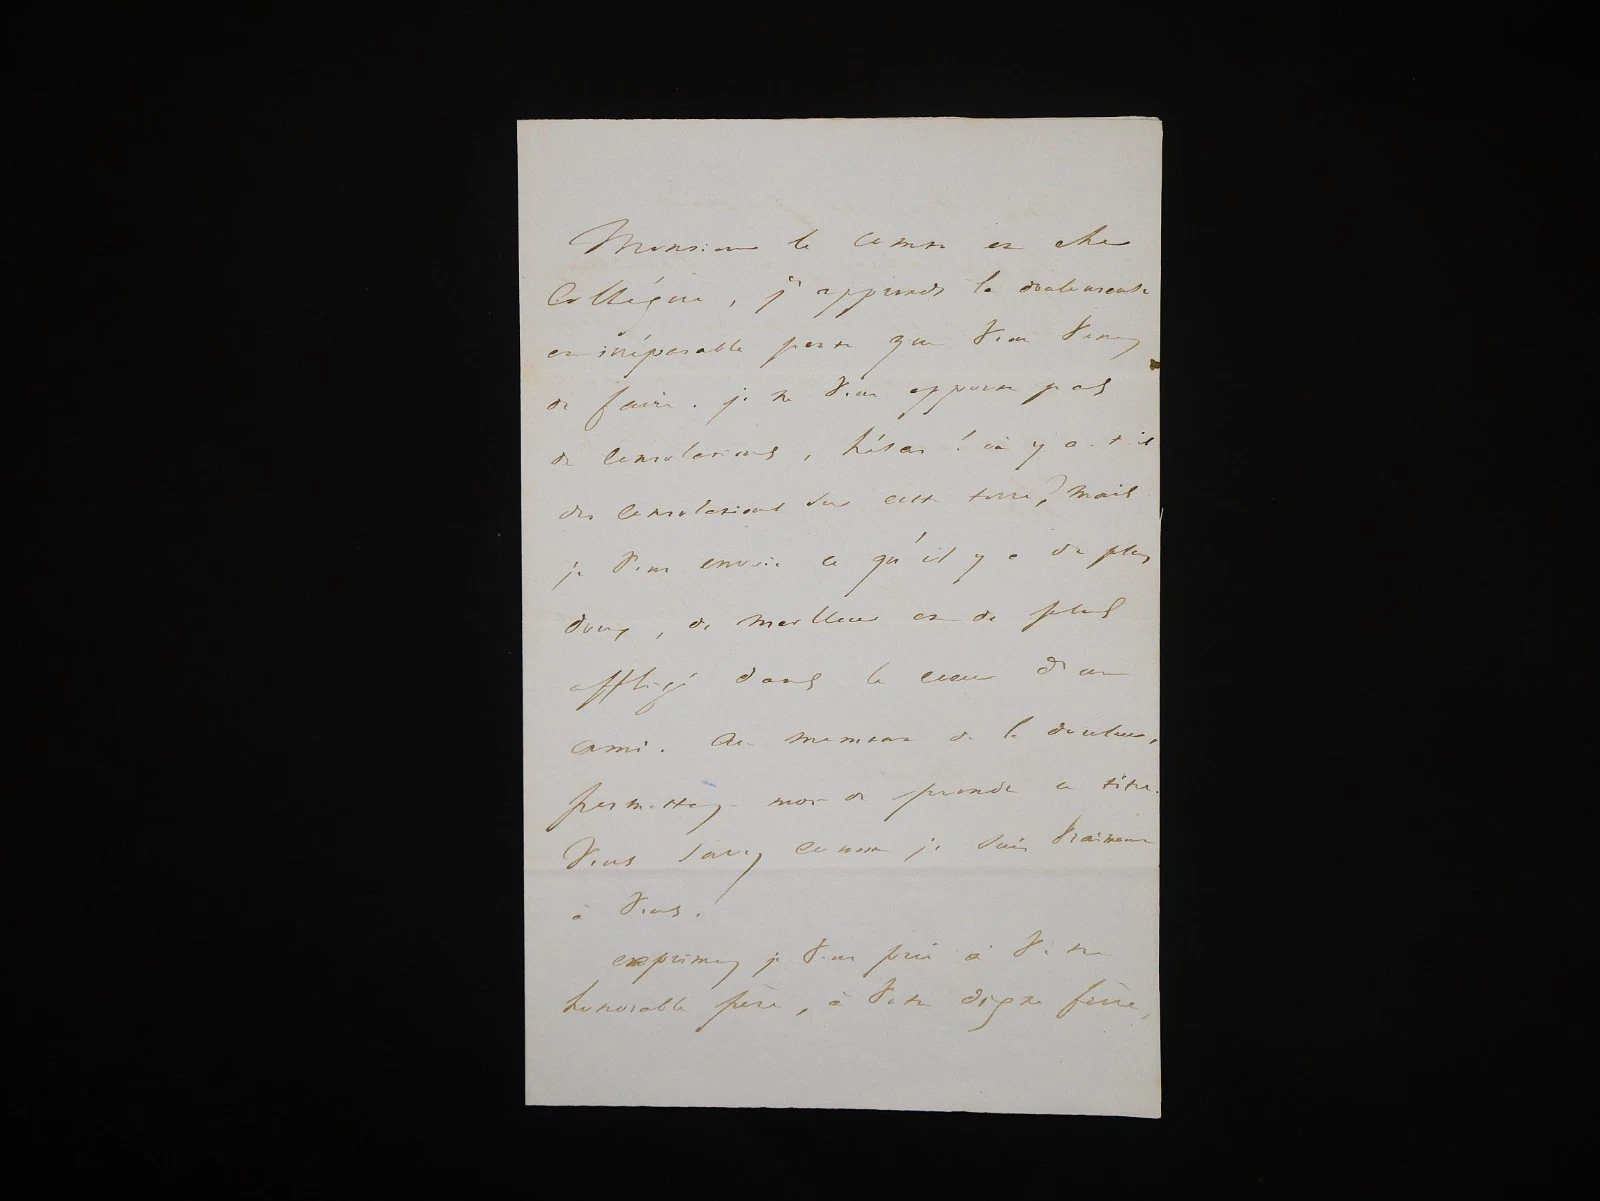 Monsieur le comte et cher
Collègue, j'apprends la douloureuse
et irréparable perte que vous venez
de faire. je ne vous apporte pas
de consolations, hélas ! où y a-t-il
des consolations sur cette terre ? mais
je vous envoie ce qu'il y a de plus
doux, de meilleur et de plus
affligé dans le cœur d'un
ami. Au moment de la douleur,
permettez-moi de prendre ce titre.
Vous savez comme je suis vraiment
à vous.
exprimez je vous prie à votre
honorable père, à votre digne frère,